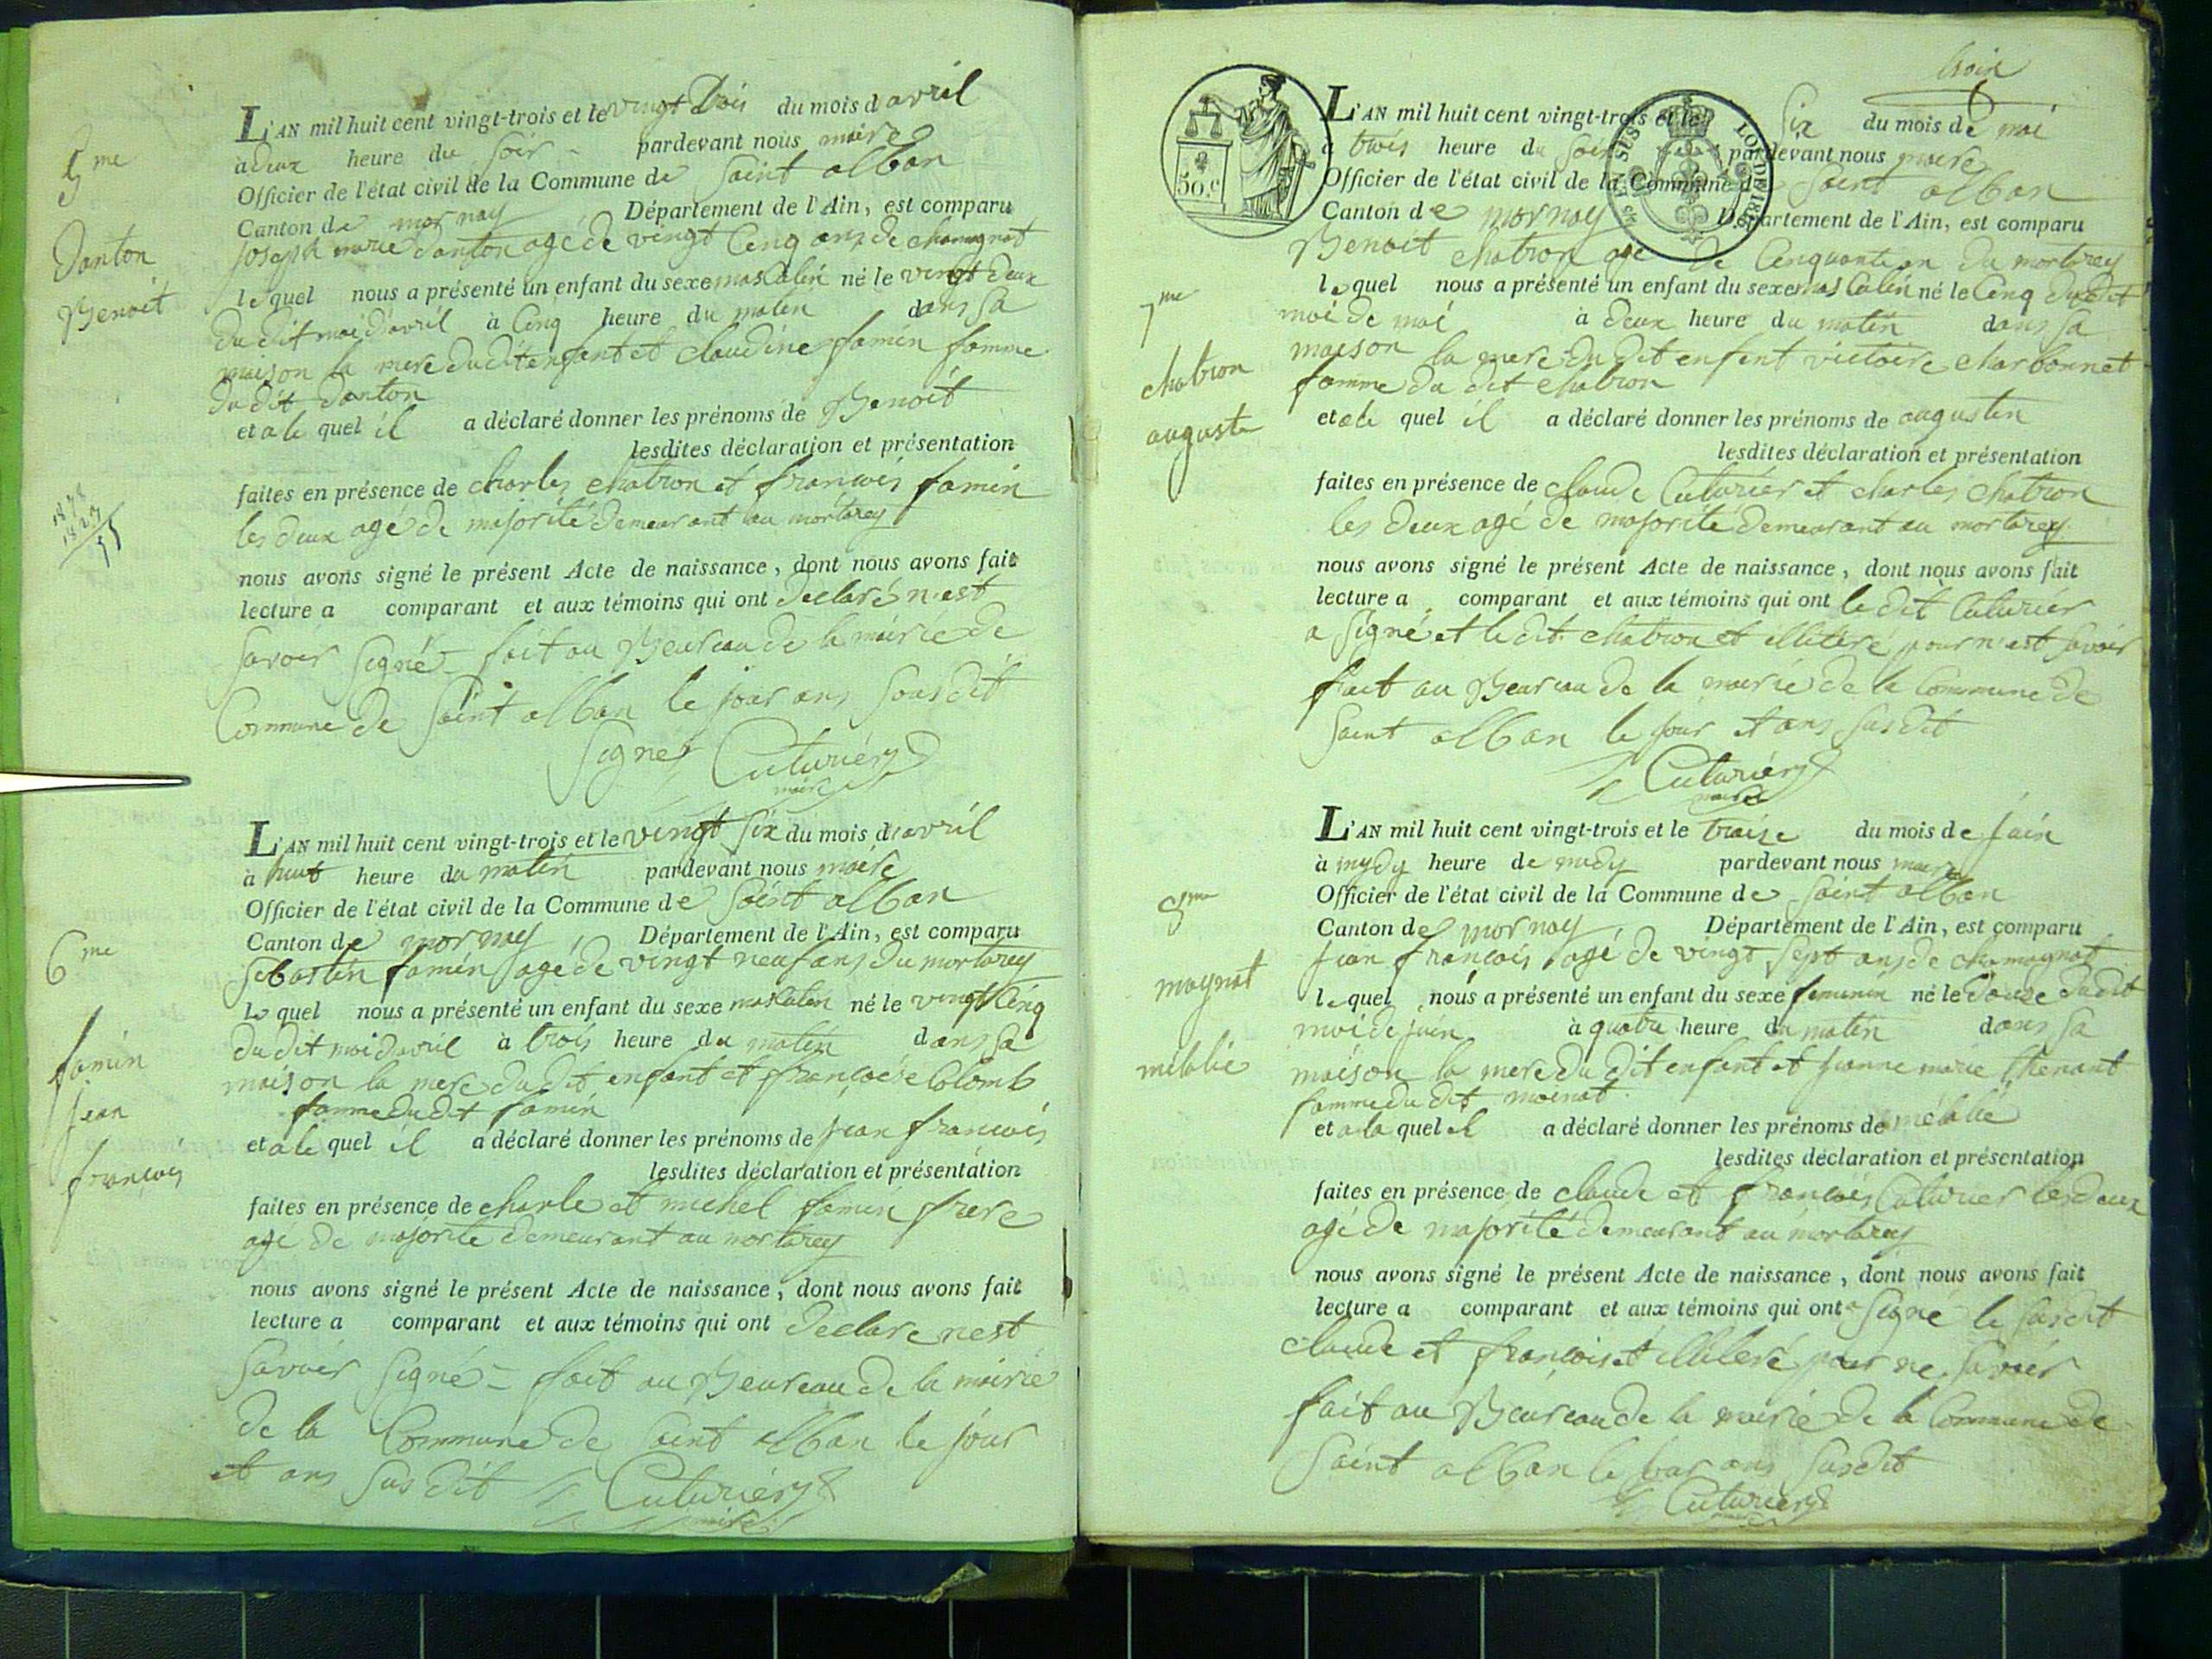 5me
Danton
Benoit
1878
1823
55
L'AN mil huit cent vingt-trois et le vingt trois du mois d avril
à deux heure du soir pardevant nous maire
Officier de l'état civil de la Commune de saint alban
Canton de mornay Département de l'Ain, est comparu
joseph marie danton agé de vingt cinq ans de chamagnat
lequel nous a présenté un enfant du sexe masculin né le vingt deux
du dit moi d'avril à cinq heure du matin dans sa
maison la mere du dit enfant et claudine famin famme
du dit danton
et a le quel il a déclaré donner les prénoms de Benoit
lesdites déclaration et présentation
faites en présence de charles chatron et francois famin
les deux agé de majorité demeurant au mortarey
nous avons signé le présent Acte de naissance, dont nous avons fait
lecture a comparant et aux témoins qui ont declaré n'est
savoir signé fait au Beureau de la mairie de
Commune de saint alban le jour ans sousdit
Signé Cuturier
maire
6me
famin
jean
francois
L'AN mil huit cent vingt-trois et le vingt six du mois d avril
à huit heure du matin pardevant nous maire
Officier de l'état civil de la Commune de saint alban
Canton de mornay Département de l'Ain, est comparu
sebastin famin agé de vingt neuf ans du mortarey
le quel nous a présenté un enfant du sexe masculin né le vingt cinq
du dit moi d'avril à trois heure du matin dans sa
maison la mere du dit enfant et francoise Colomb
famme du dit famin
et a le quel il a déclaré donner les prénoms de jean francois
lesdites déclaration et présentation
faites en présence de charle et michel famin frere
agé de majorité demeurant au mortarey
nous avons signé le présent Acte de naissance, dont nous avons fait
lecture a comparant et aux témoins qui ont declare nest
savoir signé fait au Beureau de la mairie
de la Commune de saint alban le jour
et ans susdit Cuturier
maire
trois
50.c
LOI DE 1816
7me
chatron
auguste
L'AN mil huit cent vingt-trois et le six du mois de mai
a trois heure du soir pardevant nous maire
Officier de l'état civil de la Commune de saint alban
Canton de mornay Département de l'Ain, est comparu
Benoit chatron agé de cinquante an du mortarey
le quel nous a présenté un enfant du sexe masculin né le cinq du dit
moi de mai à deux heure du matin dans sa
maison la mere du dit enfent victoire charbonnet
famme du dit chatron
et a le quel il a déclaré donner les prénoms de augustin
lesdites déclaration et présentation
faites en présence de claude Cuturier et charles chatron
les deux agé de majorité demeurant au mortarey
nous avons signé le présent Acte de naissance, dont nous avons fait
lecture a comparant et aux témoins qui ont le dit Cuturier
a signé et le dit chatron et illiteré pour n'est savoir
fait au Beureau de la mairie de la Commune de
saint alban le jour et ans susdit
Cuturier
maire
8me
moynat
mélalie
L'AN mil huit cent vingt-trois et le traize du mois de juin
à mydy heure de midy pardevant nous maire
Officier de l'état civil de la Commune de saint alban
Canton de mornay Département de l'Ain, est comparu
jean francois agé de vingt sept ans de chamagnat
le quel nous a présenté un enfant du sexe feminin né le douze du dit
moi de juin à quatre heure du matin dans sa
maison la mere du dit enfant et jeanne marie thenant
famme du dit moinat
et a la quel el a déclaré donner les prénoms de mélalie
lesdites déclaration et présentation
faites en présence de claude et francois Cuturier les deux
agé de majorité demeurant au mortarey
nous avons signé le présent Acte de naissance, dont nous avons fait
lecture a comparant et aux témoins qui ont signé le susdit
claude et francois et illiteré pour ne savoir
fait au Beureau de la mairie de la Commune de
saint alban le jour ans susdit
Cuturier